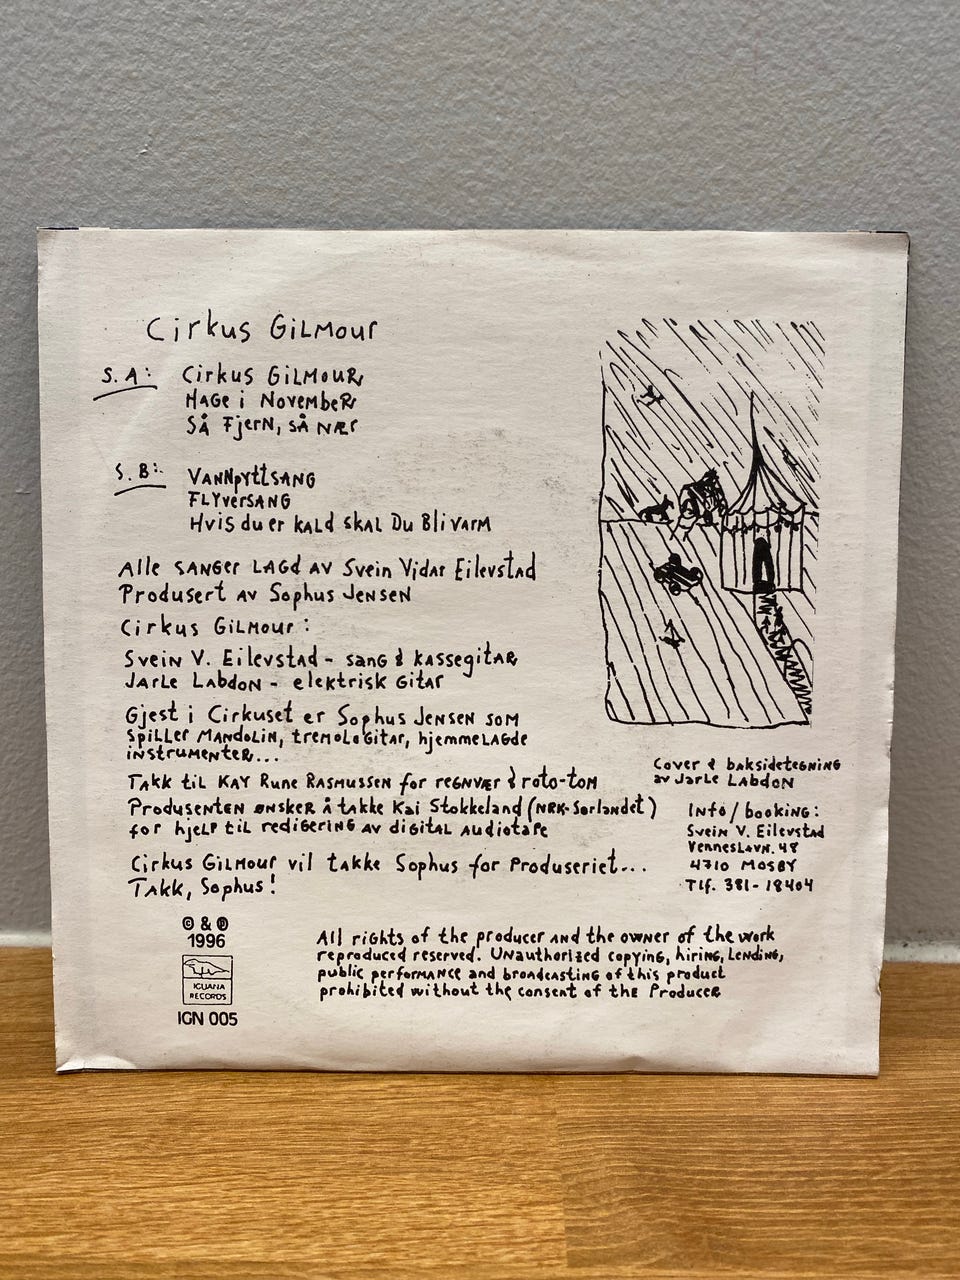 Cirkus Gilmour
S. A: Cirkus Gilmour
Hage i November
Så Fjern, så nær
S. B: Vannpyttsang
Flyversang
Hvis du er kald skal Du Bli varm
Alle sanger lagd av Svein Vidar Eilevstad
Produsert av Sophus Jensen
Cirkus Gilmour:
Svein V. Eilevstad - sang & kassegitar
Jarle Labdon - elektrisk gitar
Gjest i Cirkuset er Sophus Jensen som
spiller mandolin, tremologitar, hjemmelagde
instrumenter...
Takk til Kay Rune Rasmussen for regnvær & roto-tom
Produsenten ønsker å takke Kai Stokkeland (NRK-Sørlandet)
for hjelp til redigering av digital audiotape
Cirkus Gilmour vil takke Sophus for Produseriet...
Takk, Sophus!
Cover & baksidetegning
av Jarle Labdon
Info/booking:
Svein V. Eilevstad
Venneslavn. 48
4710 Mosby
Tlf. 381-18404
© & ℗
1996
IGUANA
RECORDS
IGN 005
All rights of the producer and the owner of the work
reproduced reserved. Unauthorized copying, hiring, lending,
public performance and broadcasting of this product
prohibited without the consent of the Producer